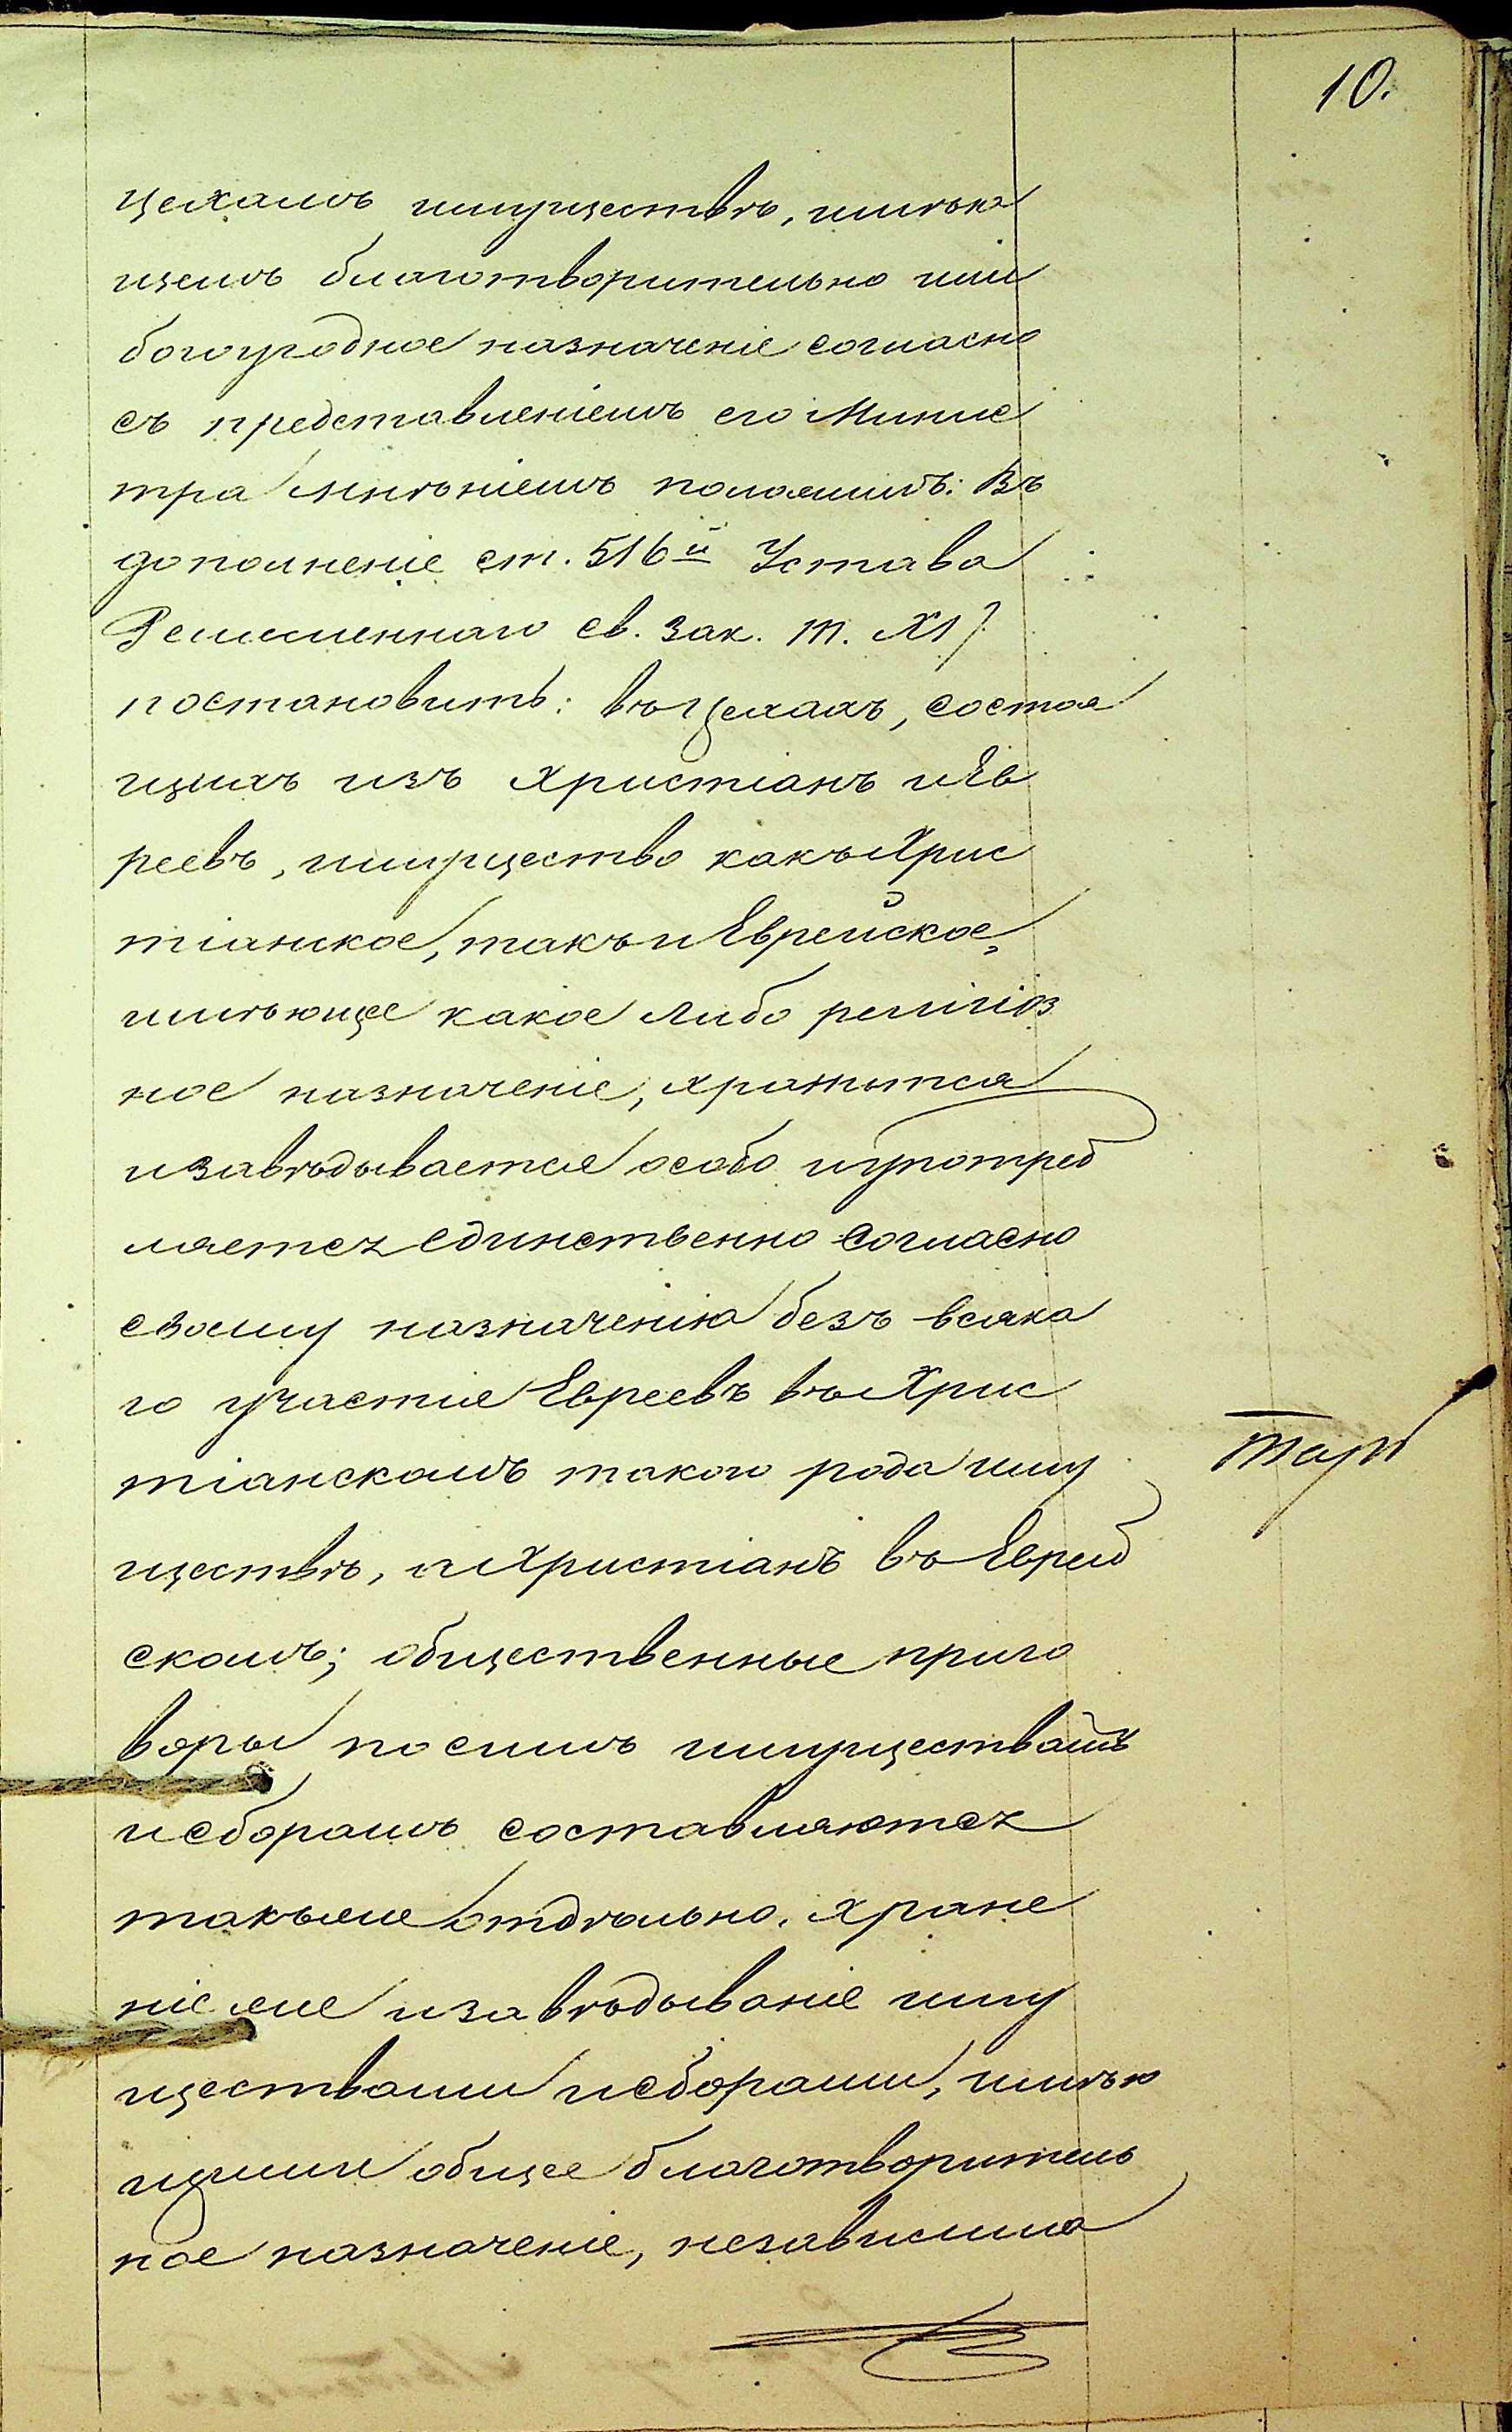 10.
цехамъ имуществѣ, имѣю
щемъ благотворительно или
богоугодное назначеніе согласно
съ представленіемъ его Минис
тра мнѣніемъ положилъ: Въ
дополненіе ст. 516й Устава
Ремесленнаго св. зак. т. XI)
постановить: въ Цехахъ, состоя
щихъ изъ Христіанъ и Ев
реевъ, имущество какъ Хрис
тіанское, такъ и Еврейское,
имѣющее какое либо религіоз
ное назначеніе, хранится
и завѣдывается особо и употреб
ляется единственно согласно
своему назначенію безъ всяка
го участія Евреевъ въ Хрис
тіанскомъ такого рода иму
ществѣ, и Христіанъ въ Еврей
скомъ; общественные приго
воры по симъ имуществамъ
и сборамъ составляются
такъже отдѣльно. Хране
ніе же и завѣдываніе иму
ществами и сборами, имѣю
щими общее благотворитель
ное назначеніе, независимо